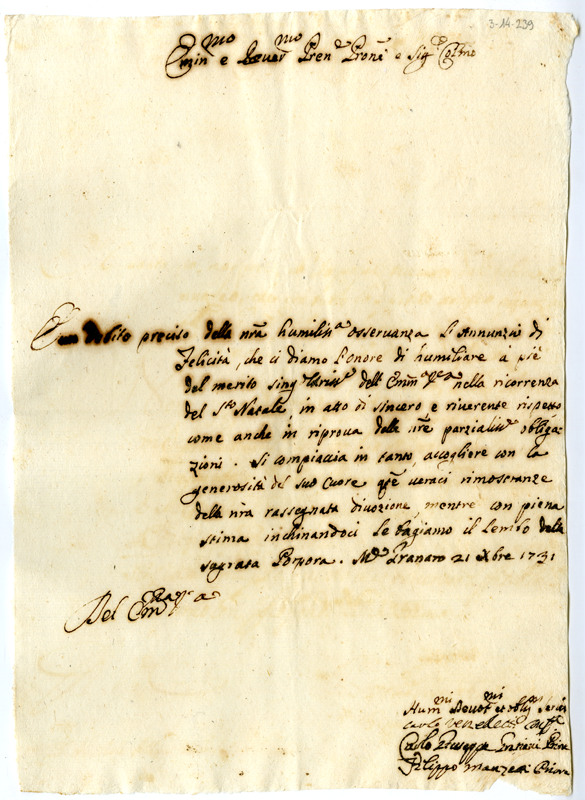 3-14-239
Emin^mo e Rever^mo Pren^e Prone e Sig^r Col^mo
È un debito preciso della nrã humiliss^a osservanza l'Annunzio di
Felicità, che ci diamo l'onore di humiliare à piè
del merito sing^ dell' Emin^a V^ra nella ricorrenza
del S^to Natale, in atto di sincero, e riverente rispetto
come anche in riprova delle nrẽ parzialiss^e obliga-
zioni. Si compiaccia in tanto, accogliere con la
generosità del suo Cuore q̃te veraci rimostranze
della nrã rassegnata divozione, mentre con piena
stima inchinandoci le bagiamo il lembo della
sagrata Porpora. M^e Granaro 21 Xbre 1731
Del Em^za V^ra
Hum^mi Devot^mi et oblig^mi Ser^ri
Carlo
Carlo Giuseppe Graziani Priore
Filippo Manzetti Priore